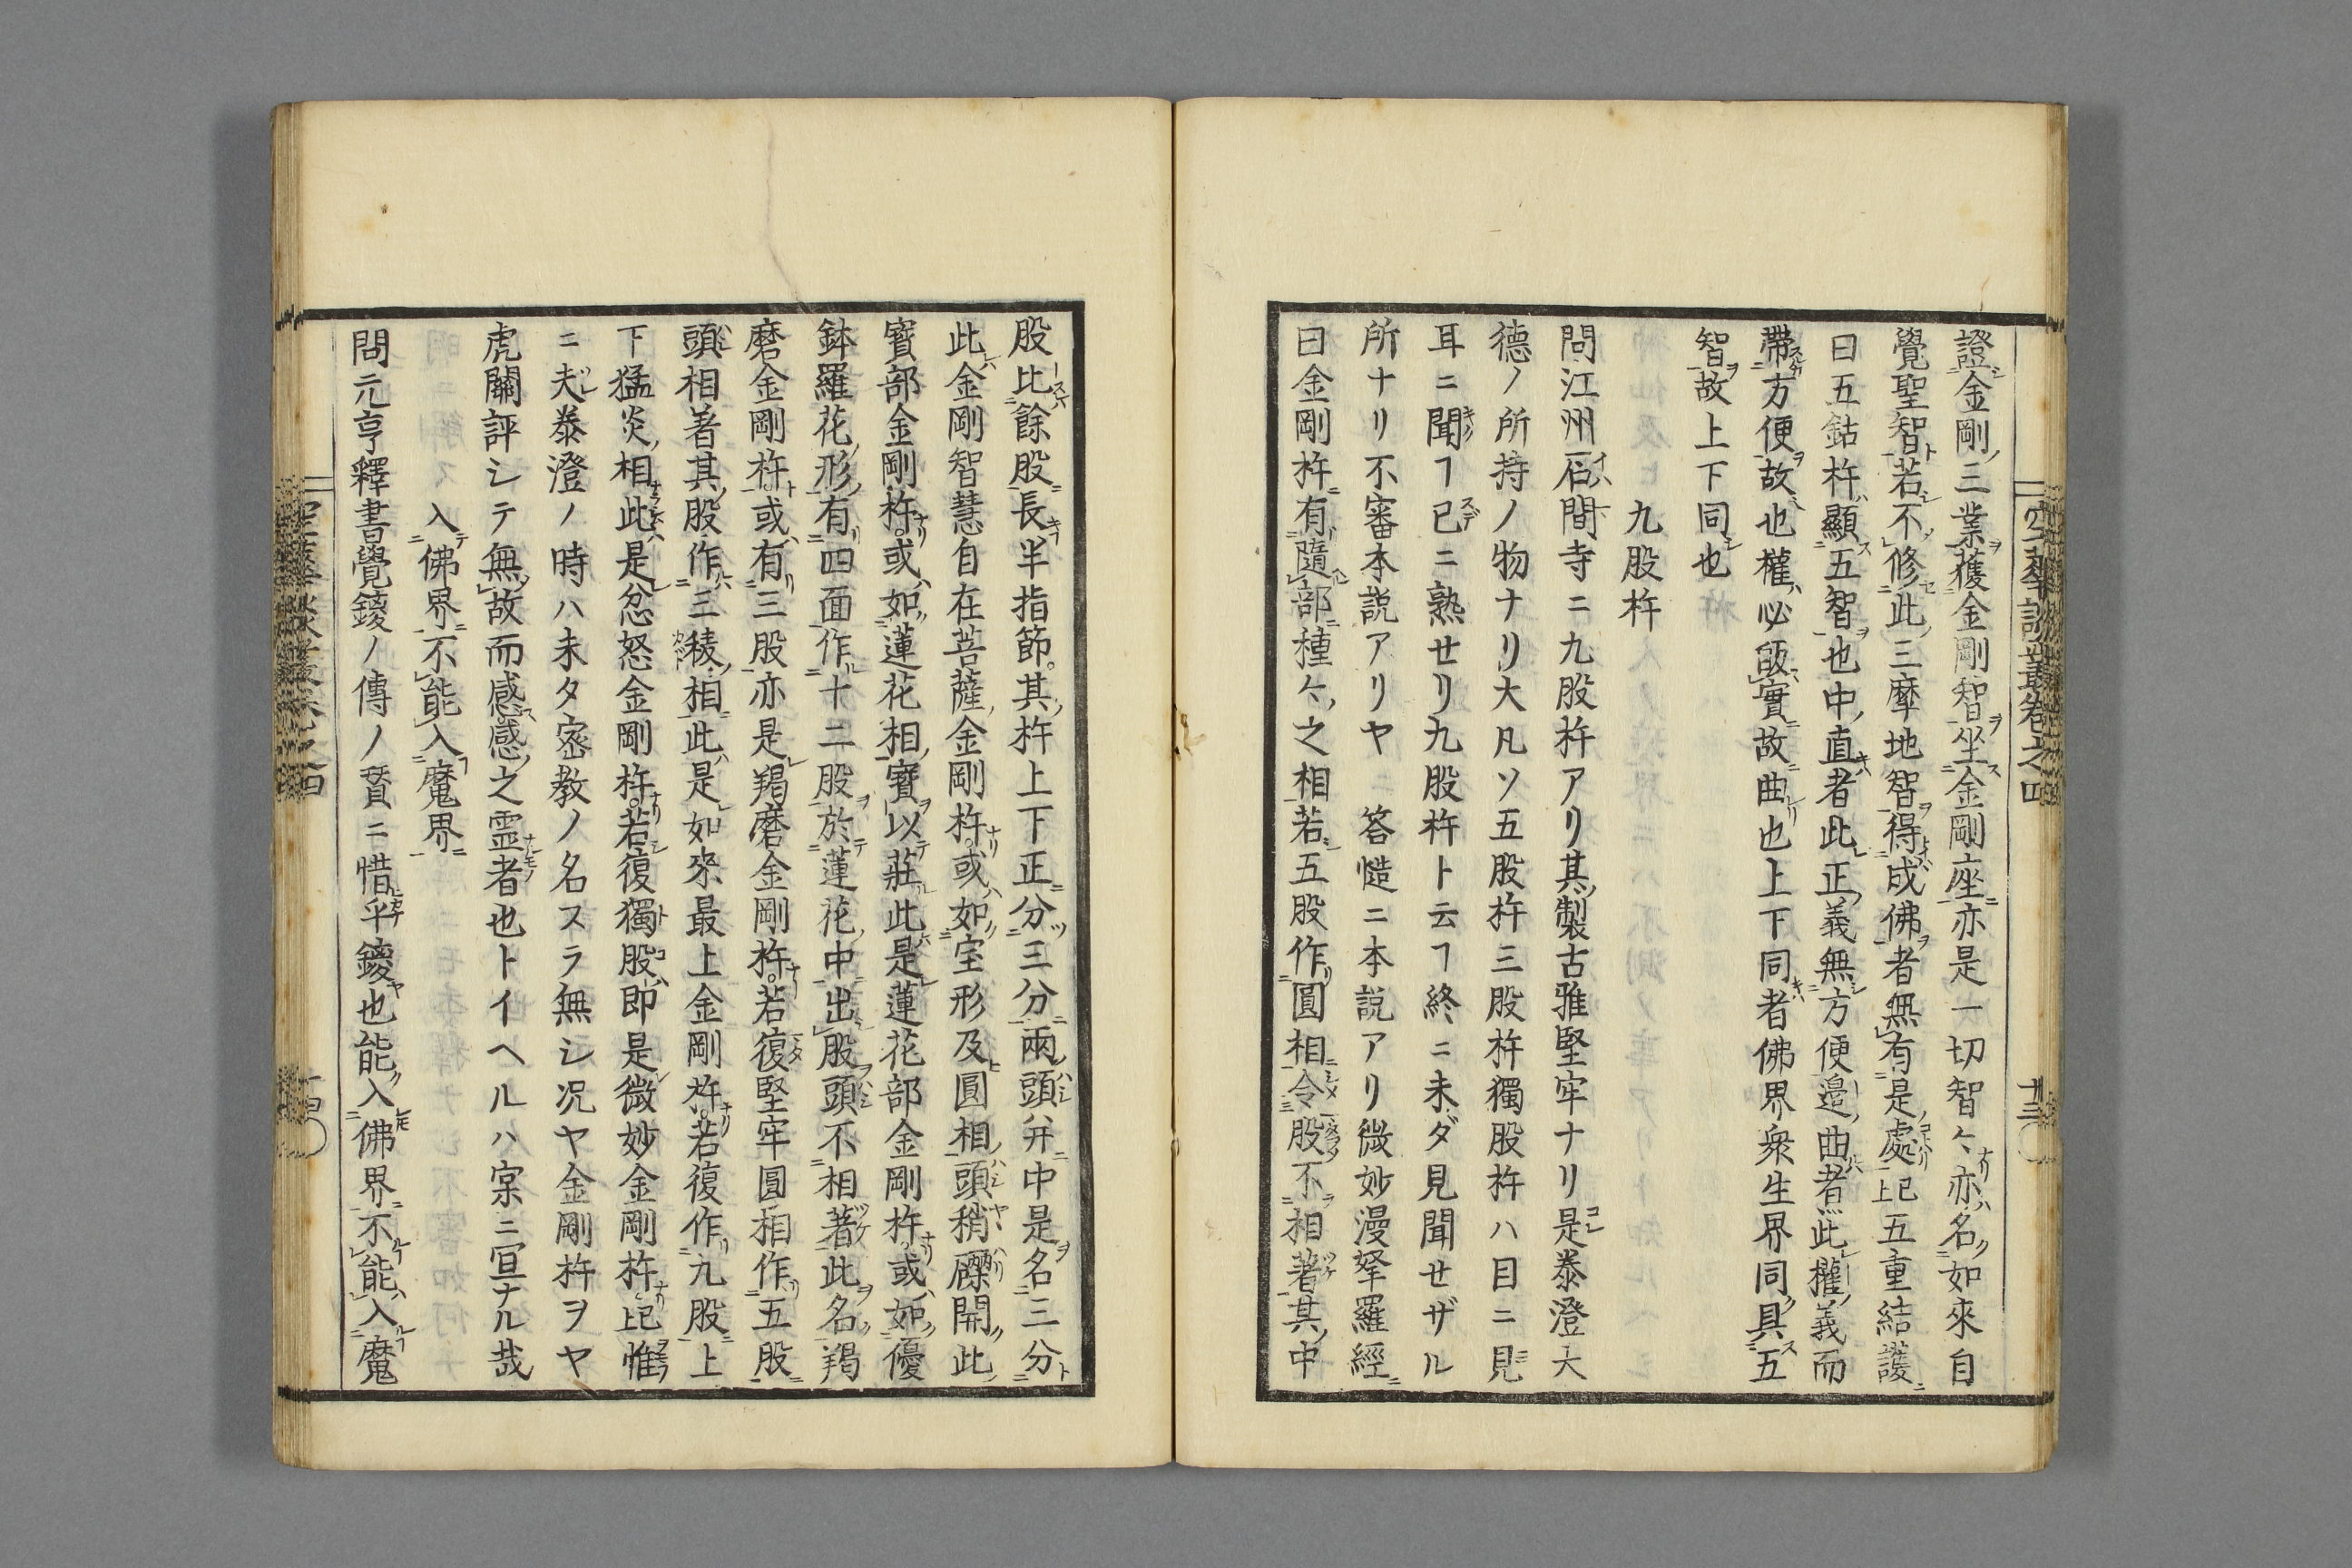 空華談叢卷之四
十三
證金剛三業獲金剛智坐金剛座亦是一切智々亦名如來自
覺聖智若不修此三摩地智得成佛者無有是處已上五重結護
曰五鈷杵顯五智也中直者此正義無方便邉曲者此權義而
帶方便故也權必皈實故曲也上下同者佛界衆生界同具五
智故上下同也
九股杵
問江州石間寺ニ九股杵アリ其製古雅堅牢ナリ是泰澄大
德ノ所持ノ物ナリ大凡ソ五股杵三股杵獨股杵ハ目ニ見
耳ニ聞ヿ已ニ熟せリ九股杵ト云ヿ終ニ未ダ見聞せザル
所ナリ不審本説アリヤ 答慥ニ本説アリ微妙漫拏羅經
曰金剛杵有隨部種々之相若五股作圓相令股不相著其中
股比餘股長半指節其杵上下正分三分兩頭幷中是名三分
此金剛智慧自在菩薩金剛杵或如宝形及圓相頭稍𨻶開此
寳部金剛杵或如蓮花相寳以莊此是蓮花部金剛杵或如優
鉢羅花形有四面作十二股於蓮花中出股頭不相著此名羯
磨金剛杵或有三股亦是羯磨金剛杵若復堅牢圓相作五股
頭相著其股作三稜相此是如來最上金剛杵若復作九股上
下猛炎相此是忿怒金剛杵若復獨股即是微妙金剛杵已上惟
ニ夫泰澄ノ時ハ未タ密教ノ名スラ無シ况ヤ金剛杵ヲヤ
虎關評シテ無故而感感之霊者也トイヘルハ寔ニ宣ナル哉
入佛界不能入魔界
問元亨釋書覺鑁ノ傳ノ賛ニ惜乎鑁也能入佛界不能入魔
空華談叢卷之四
十四